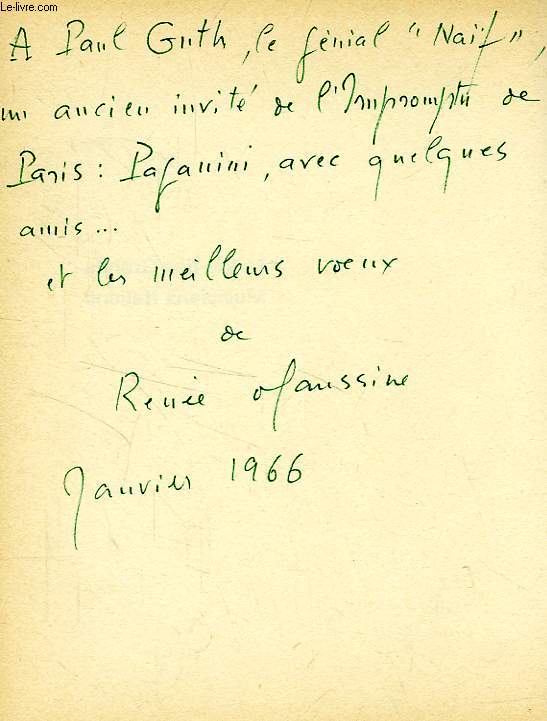 Le-livre.com
A Paul Guth, le génial "Naïf",
un ancien invité de l'Impromptu de
Paris : Paganini, avec quelques
amis...
et les meilleurs voeux
de
Renée
Janvier 1966